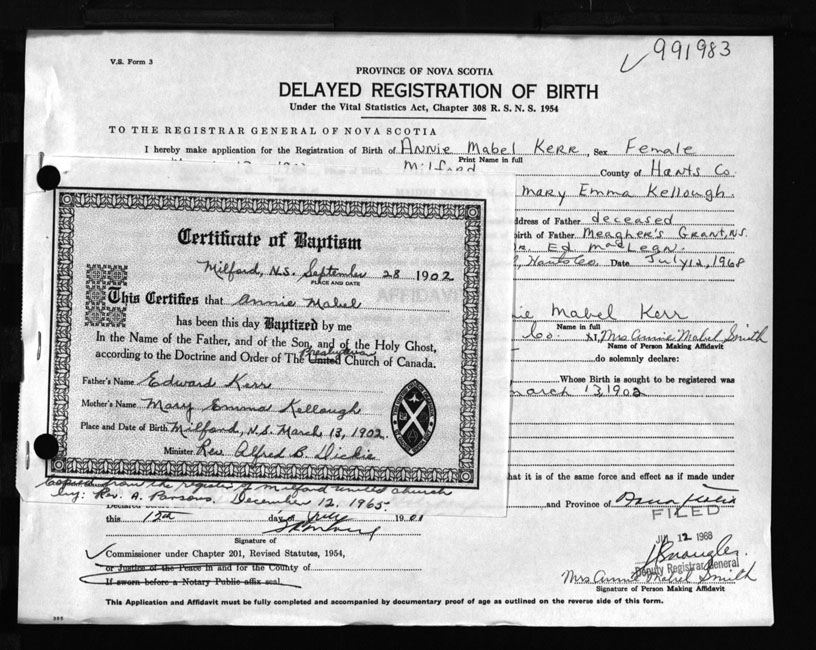 991983
V.S. Form 3
PROVINCE OF NOVA SCOTIA
DELAYED REGISTRATION OF BIRTH
Under the Vital Statistics Act, Chapter 308 R. S. N. S. 1954
TO THE REGISTRAR GENERAL OF NOVA SCOTIA
I hereby make application for the Registration of Birth of Annie Mabel Kerr, Sex Female
Print Name in full
Milford County of Hants Co.
Mary Emma Kellough.
Address of Father deceased
Birth of Father Meagher's Grant, N.S.
Dr. Ed
Hants Co. Date July 12, 1968
Mabel Kerr
Name in full
Co. I, Mrs Annie Mabel Smith
Name of Person Making Affidavit
do solemnly declare:
Whose Birth is sought to be registered was
March 13, 1902
that it is of the same force and effect as if made under
and Province of Nova Scotia
FILED
Certificate of Baptism
Milford, N.S. September 28 1902
PLACE AND DATE
This Certifies that Annie Mabel
has been this day Baptized by me
In the Name of the Father, and of the Son, and of the Holy Ghost,
Presbyterian
according to the Doctrine and Order of The United Church of Canada.
Father's Name Edward Kerr
Mother's Name Mary Emma Kellough
Place and Date of Birth Milford, N.S. March 13, 1902.
Minister Rev. Alfred B. Dickie
from the register of Milford United Church
by: Rev. A. Parsons. December 12, 1965.
this 12th day of July 19
Signature of
Commissioner under Chapter 201, Revised Statutes, 1954,
or Justice of the Peace in and for the County of
If sworn before a Notary Public affix seal
JUL 12 1968
Deputy Registrar General
Mrs Annie Mabel Smith
Signature of Person Making Affidavit
This Application and Affidavit must be fully completed and accompanied by documentary proof of age as outlined on the reverse side of this form.